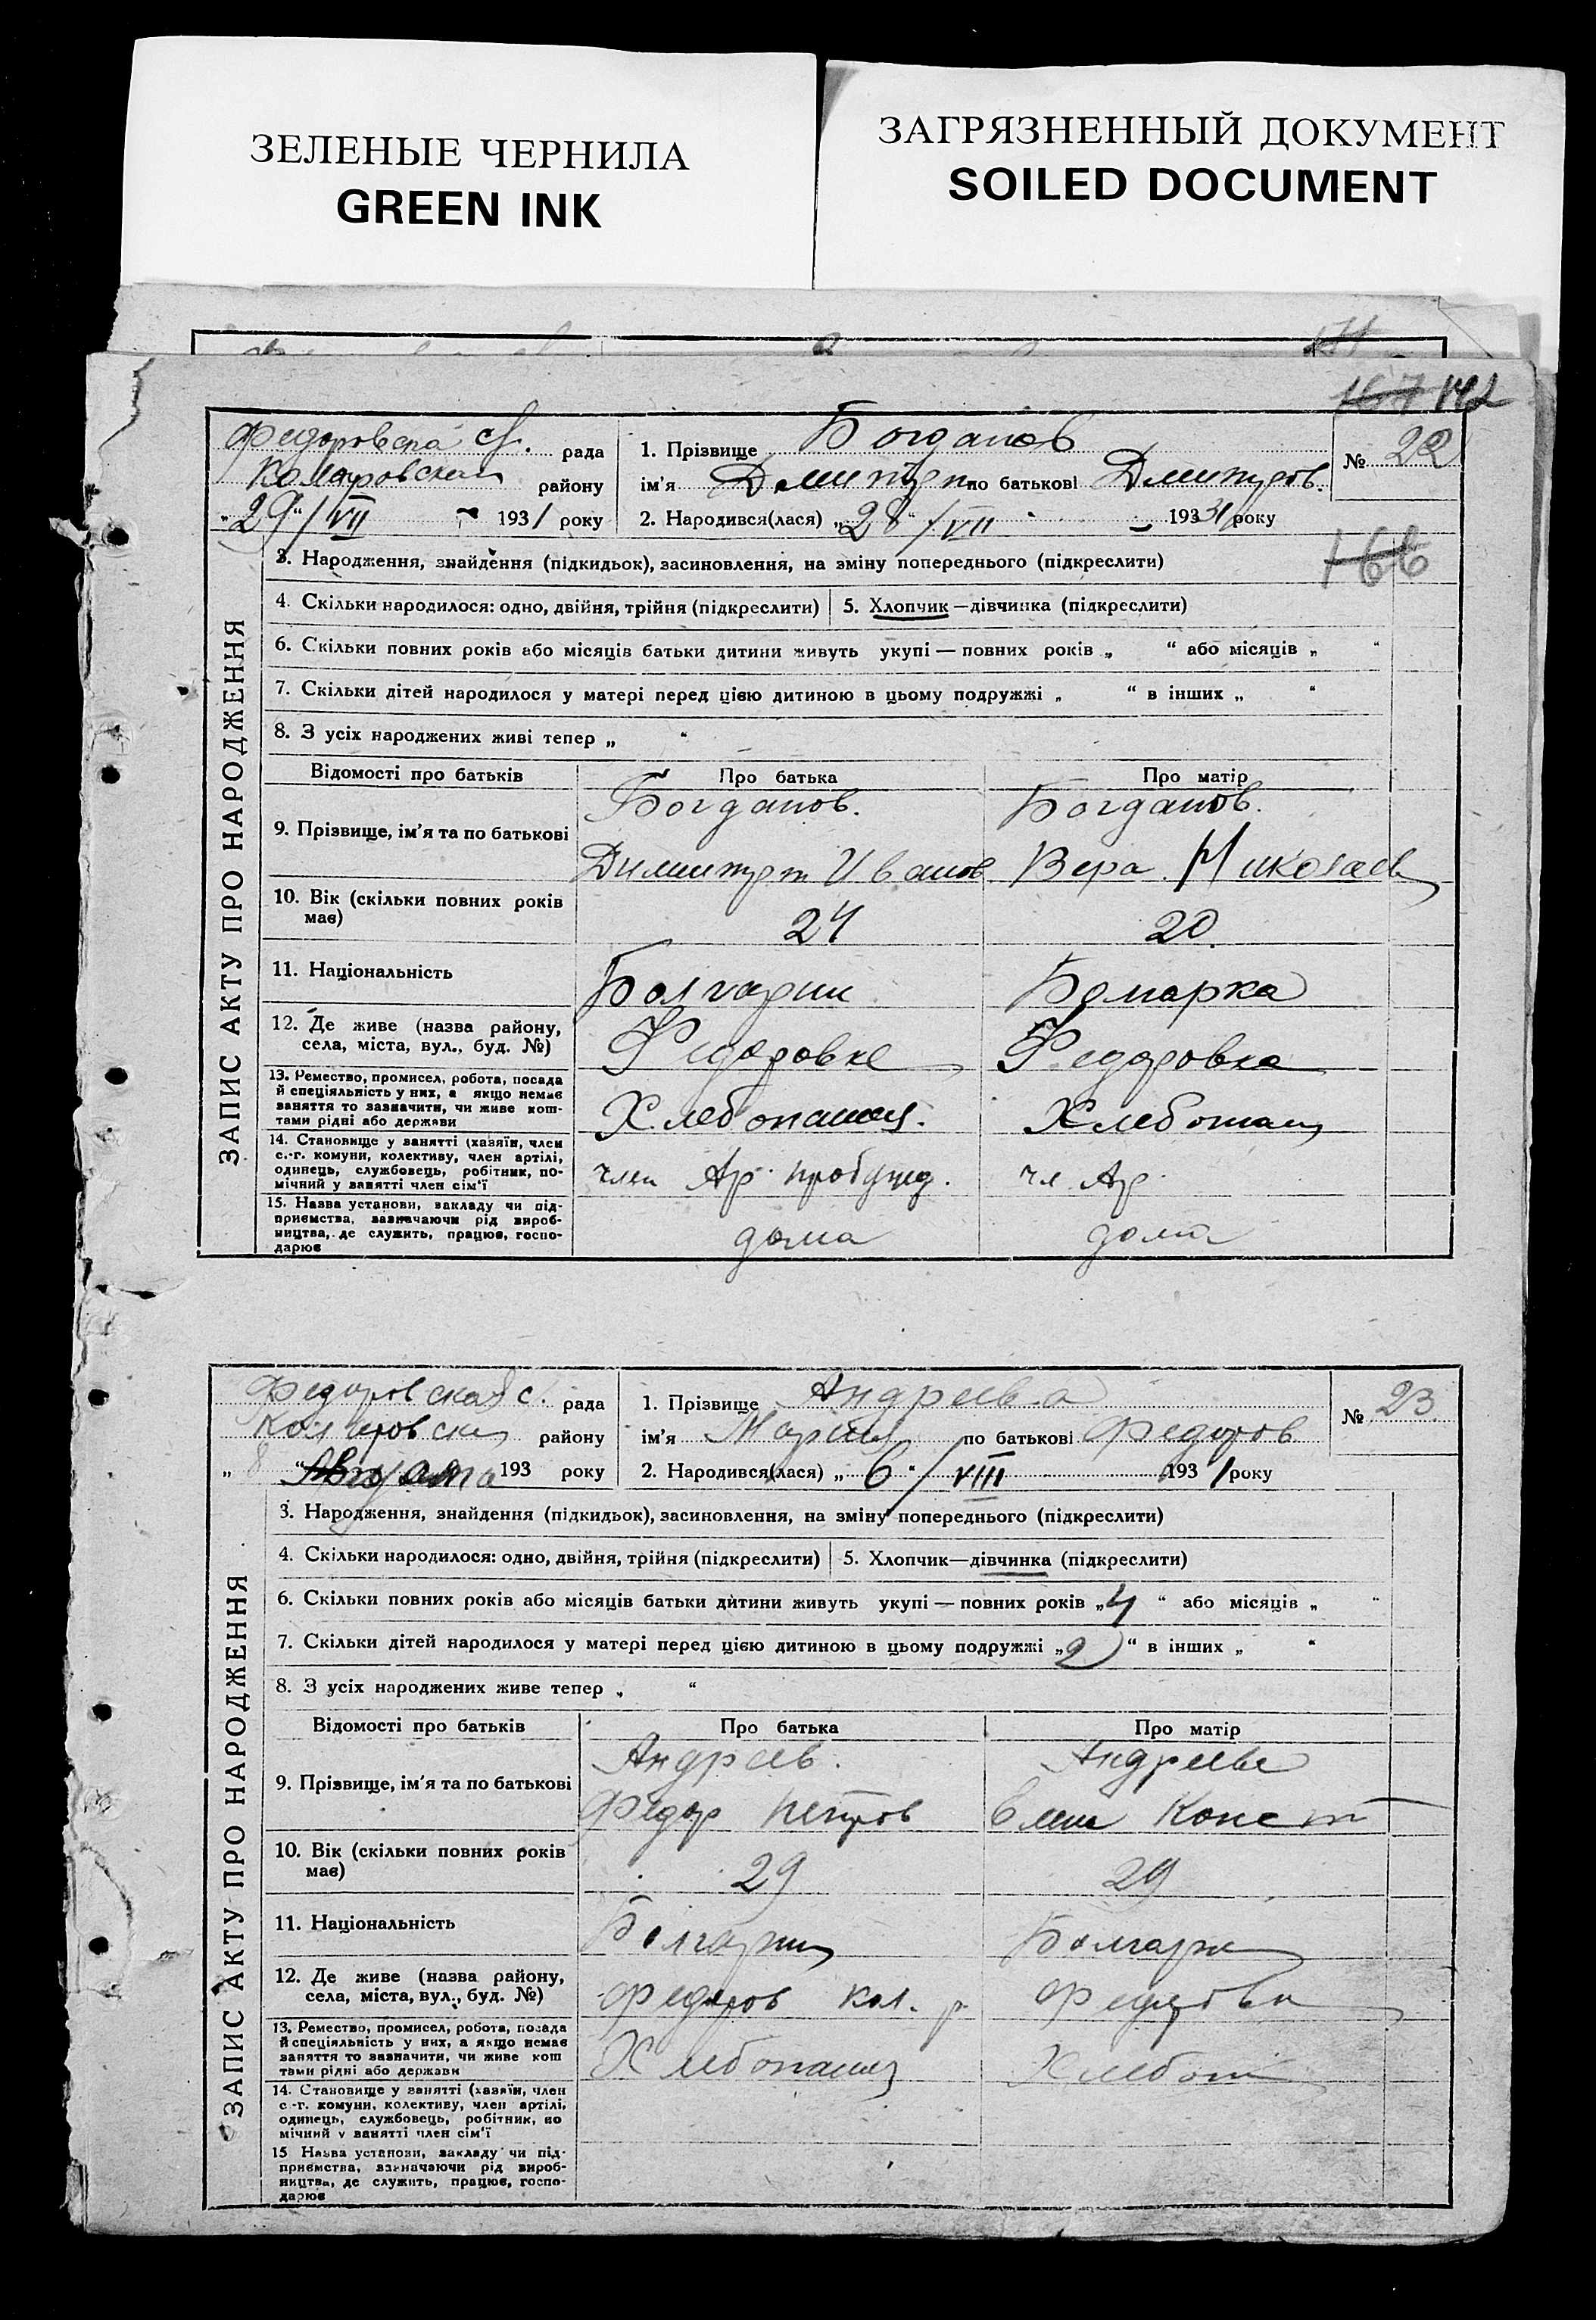 ЗЕЛЕНЫЕ ЧЕРНИЛА
GREEN INK
ЗАГРЯЗНЕННЫЙ ДОКУМЕНТ
SOILED DOCUMENT
167 142
166
ЗАПИС АКТУ ПРО НАРОДЖЕННЯ
Федоровска рада
району
"29"/VII 1931 року
1. Прізвище Богданов
ім'я Дмитри по батькові Дмитров.
2. Народився(лася) „28"/VII 1931 року
№ 22
3. Народження, знайдення (підкидьок), засиновлення, на зміну попереднього (підкреслити)
4. Скільки народилося: одно, двійня, трійня (підкреслити) 5. Хлопчик—дівчинка (підкреслити)
6. Скільки повних років або місяців батьки дитини живуть укупі — повних років „ “ або місяців „ “
7. Скільки дітей народилося у матері перед цією дитиною в цьому подружжі „ “ в інших „ “
8. З усіх народжених живі тепер „ “
Відомості про батьків Про батька Про матір
9. Прізвище, ім'я та по батькові
Богданов. Богданов.
Димитри Иванов Вера Николаев
10. Вік (скільки повних років
має)
24 20.
11. Національність
Болгарин Болгарка
12. Де живе (назва району,
села, міста, вул., буд. №)
Федоровке Федоровка
13. Ремество, промисел, робота, посада
й спеціяльність у них, а якщо немає
заняття то зазначити, чи живе кош-
тами рідні або держави
Хлебопашец.
14. Становище у занятті (хазяїн, член
с.-г. комуни, колективу, член артілі,
одинець, службовець, робітник, по-
мічний у занятті член сім'ї
член Ар. чл Ар.
15. Назва установи, закладу чи під-
приємства, зазначаючи рід вироб-
ництва, де служить, працює, госпо-
дарює
дома дома
ЗАПИС АКТУ ПРО НАРОДЖЕННЯ
Федоровская с. рада
району
„8“ Августа 193 року
1. Прізвище Андреева
ім'я Мария по батькові Федоров
2. Народився(лася) „6“/VIII 1931 року
№ 23
3. Народження, знайдення (підкидьок), засиновлення, на зміну попереднього (підкреслити)
4. Скільки народилося: одно, двійня, трійня (підкреслити) 5. Хлопчик—дівчинка (підкреслити)
6. Скільки повних років або місяців батьки дитини живуть укупі — повних років „4“ або місяців „ “
7. Скільки дітей народилося у матері перед цією дитиною в цьому подружжі „2“ в інших „ “
8. З усіх народжених живе тепер „ “
Відомості про батьків Про батька Про матір
9. Прізвище, ім'я та по батькові
Андреев. Андреева
Федор Петров Конст
10. Вік (скільки повних років
має)
29 29
11. Національність
Болгарин Болгарка
12. Де живе (назва району,
села, міста, вул., буд. №)
Федоров кол. р. Федоровка
13. Ремество, промисел, робота, посада
й спеціяльність у них, а якщо немає
заняття то зазначити, чи живе кош
тами рідні або держави
Хлебопашец
14. Становище у занятті (хазяїн, член
с.-г. комуни, колективу, член артілі,
одинець, службовець, робітник, по
мічний у занятті член сім'ї
15 Назва установи, закладу чи під-
приємства, зазначаючи рід вироб-
ництва, де служить, працює, госпо-
дарює